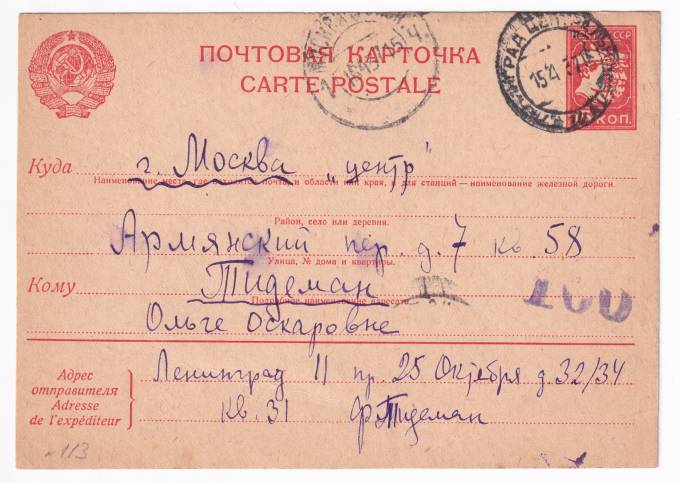 ПОЧТОВАЯ КАРТОЧКА
CARTE POSTALE
КОП.
Куда г. Москва „центр"
Наименование места, где почта и области или края, а для станций—наименование железной дороги.
Район, село или деревня.
Армянский пер. д. 7 кв 58
Улица, № дома и квартиры.
Кому Тидеман
Подробное наименование адресата.
Ольге Оскаровне
100
Адрес отправителя
Adresse de l'expéditeur
Ленинград 11 пр. 25 Октября д. 32/34
Кв. 31 Ф Тидеман
№ 113